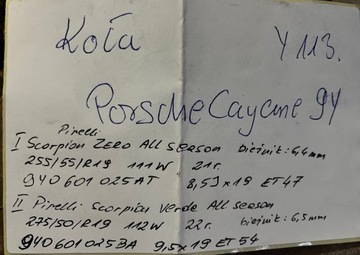 Koła Y 113.
Porsche Cayenne 9Y
Pirelli
I Scorpion ZERO All season bieżnik: 6,4mm
255/55/R19 111W 21r.
9Y0 601 025 AT 8,5J x 19 ET 47
II Pirelli Scorpion Verde All season
275/50/R19 112W 22r. bieżnik: 6,5mm
9Y0 601 025 BA 9,5 x 19 ET 54